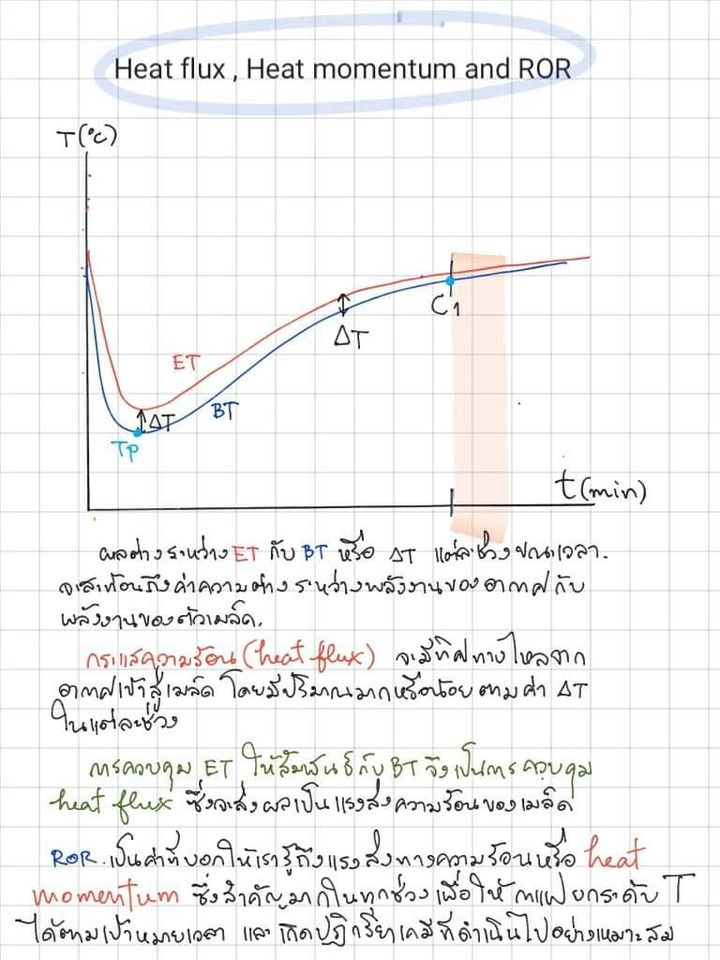 Heat flux , Heat momentum and ROR
T(°c)
C1
ΔT
ET
ΔT
BT
Tp
t(min)
ผลต่างระหว่าง ET กับ BT หรือ ΔT แต่ละช่วงขณะเวลา.
จะสะท้อนถึงค่าความต่างระหว่างพลังงานของอากาศกับ
พลังงานของตัวเมล็ด.
กระแสความร้อน (heat flux) จะมีทิศทางไหลจาก
อากาศเข้าสู่เมล็ด โดยมีปริมาณมากหรือน้อยตามค่า ΔT
ในแต่ละช่วง
การควบคุม ET ให้สัมพันธ์กับ BT จึงเป็นการควบคุม
heat flux ซึ่งจะส่งผลเป็นแรงส่งความร้อนของเมล็ด
ROR. เป็นค่าที่บอกให้เรารู้ถึงแรงส่งทางความร้อนหรือ heat
momentum ซึ่งสำคัญมากในทุกช่วง เพื่อให้กาแฟยกระดับ T
ได้ตามเป้าหมายเวลา และเกิดปฏิกริยาเคมีที่ดำเนินไปอย่างเหมาะสม